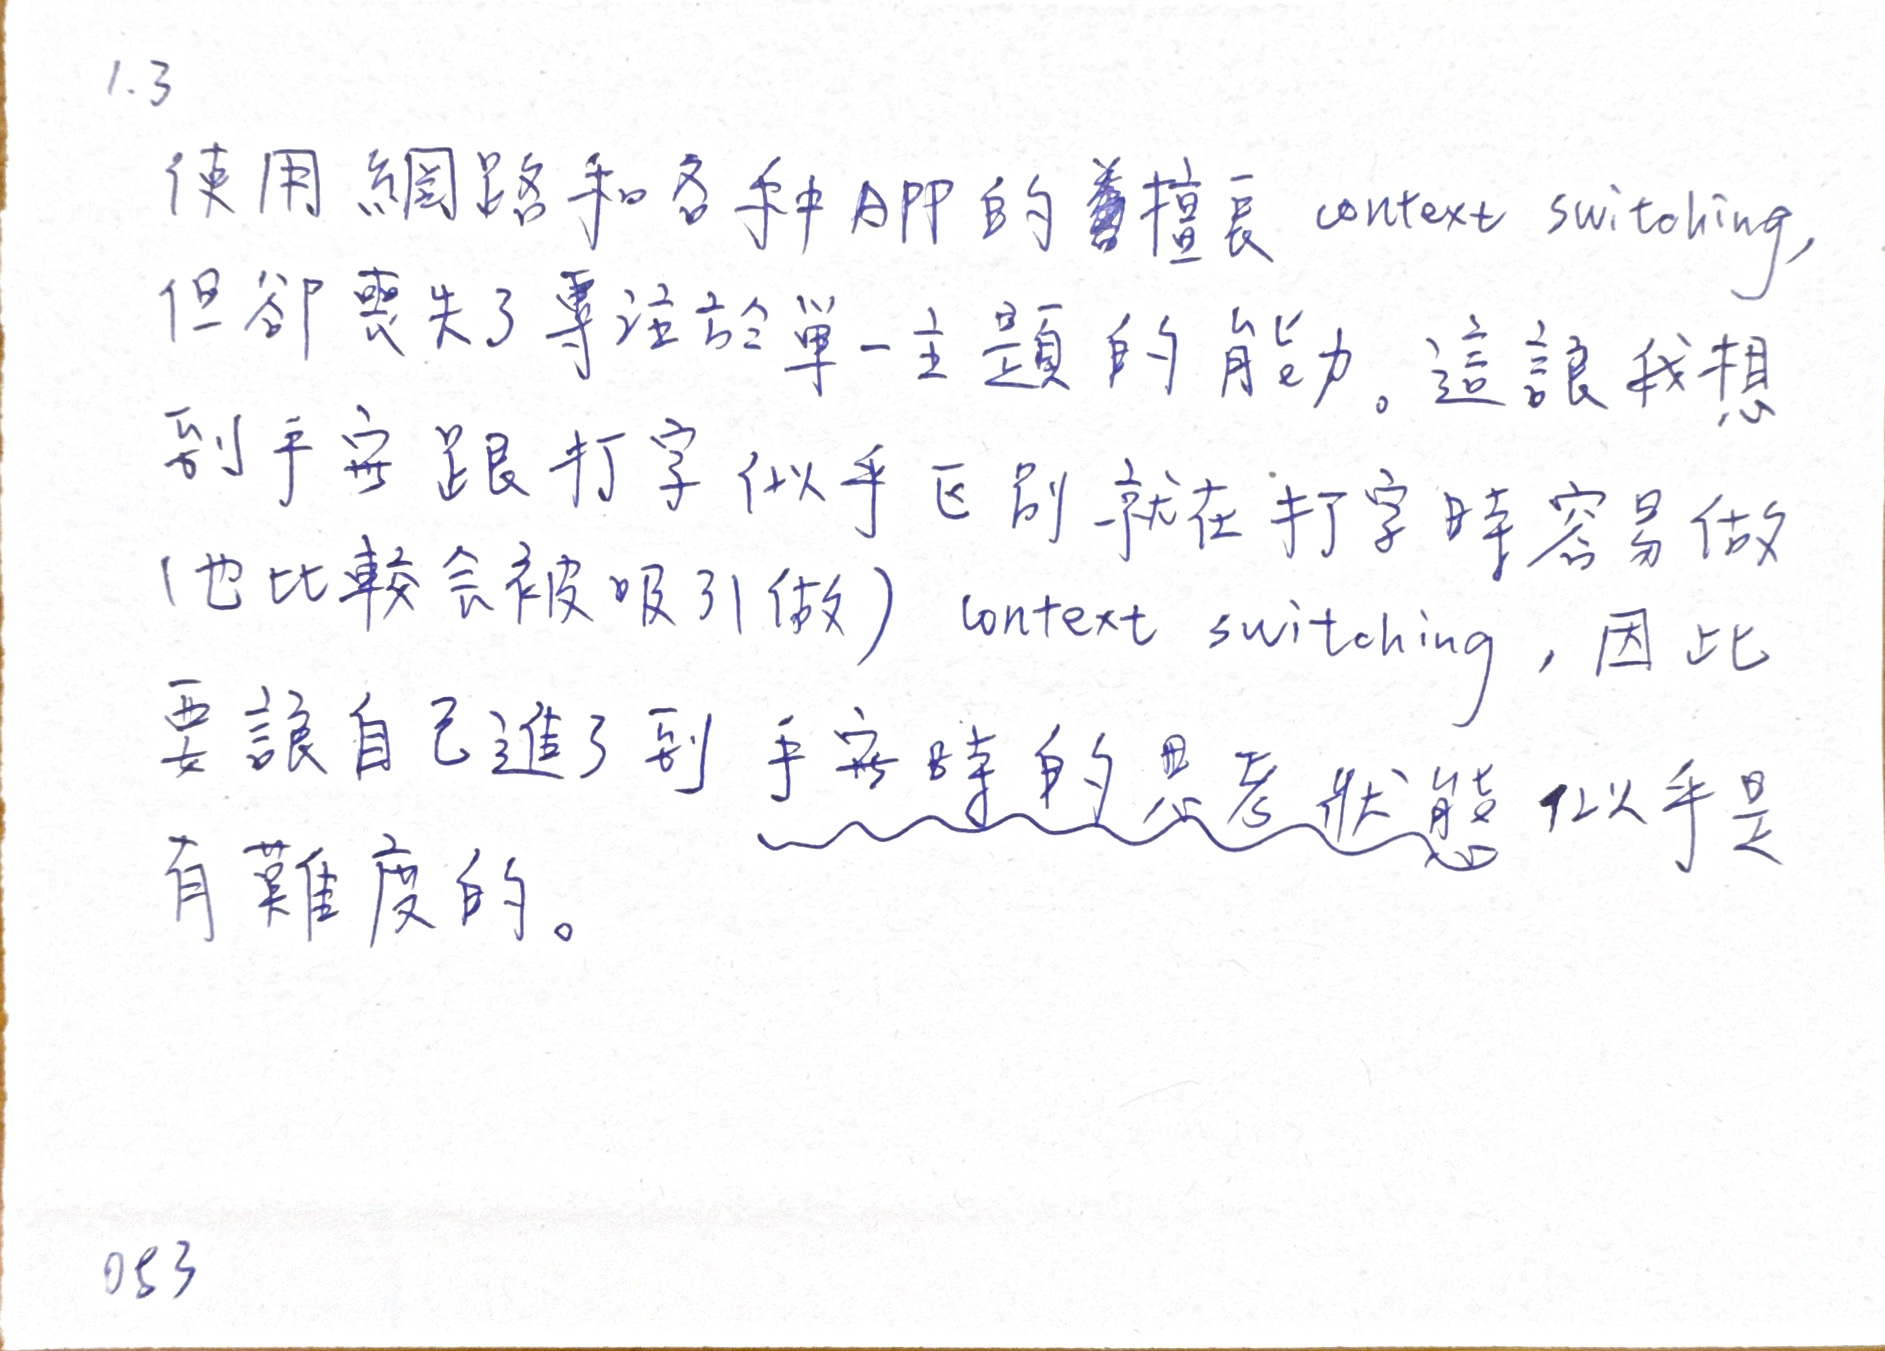 1.3
使用網路和各种APP的擅長 context switching,
但卻喪失了專注於單一主題的能力。這讓我想
到手寫跟打字似乎区別就在打字時容易做
(也比較会被吸引做) context switching,因此
要讓自己進了到手寫時的思考狀態似乎是
有難度的。
053